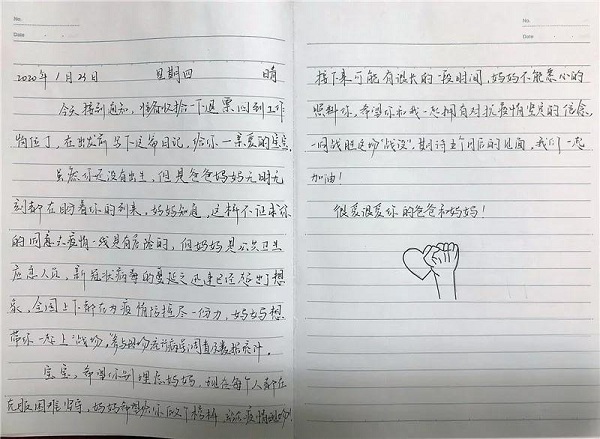 No.
Date
2020年1月23日 星期四 晴
今天接到通知，准备收拾一下退票回到工作
岗位了，在出发前写下这篇日记，给你一亲爱的宝宝
虽然你还没有出生，但是爸爸妈妈无时无
刻都在盼着你的到来，妈妈知道，这样不征求你
的同意去疫情一线是有危险的，但妈妈是公共卫生
应急人员，新冠状病毒的蔓延之迅速已经超出了想
象，全国上下都在为疫情防控尽一份力，妈妈想
带你一起上"战场，参与流行病学调查及数据统计。
宝宝，希望你别埋怨妈妈，现在每个人都在
克服困难坚守，妈妈希望给你做个榜样，
No.
Date
接下来可能有很长的一段时间，妈妈不能悉心的
照料你，希望你和我一起拥有对抗疫情坚定的信念，
一同战胜这场"战役"，期待五个月后的见面，我们一起
加油！
很爱很爱你的爸爸和妈妈！